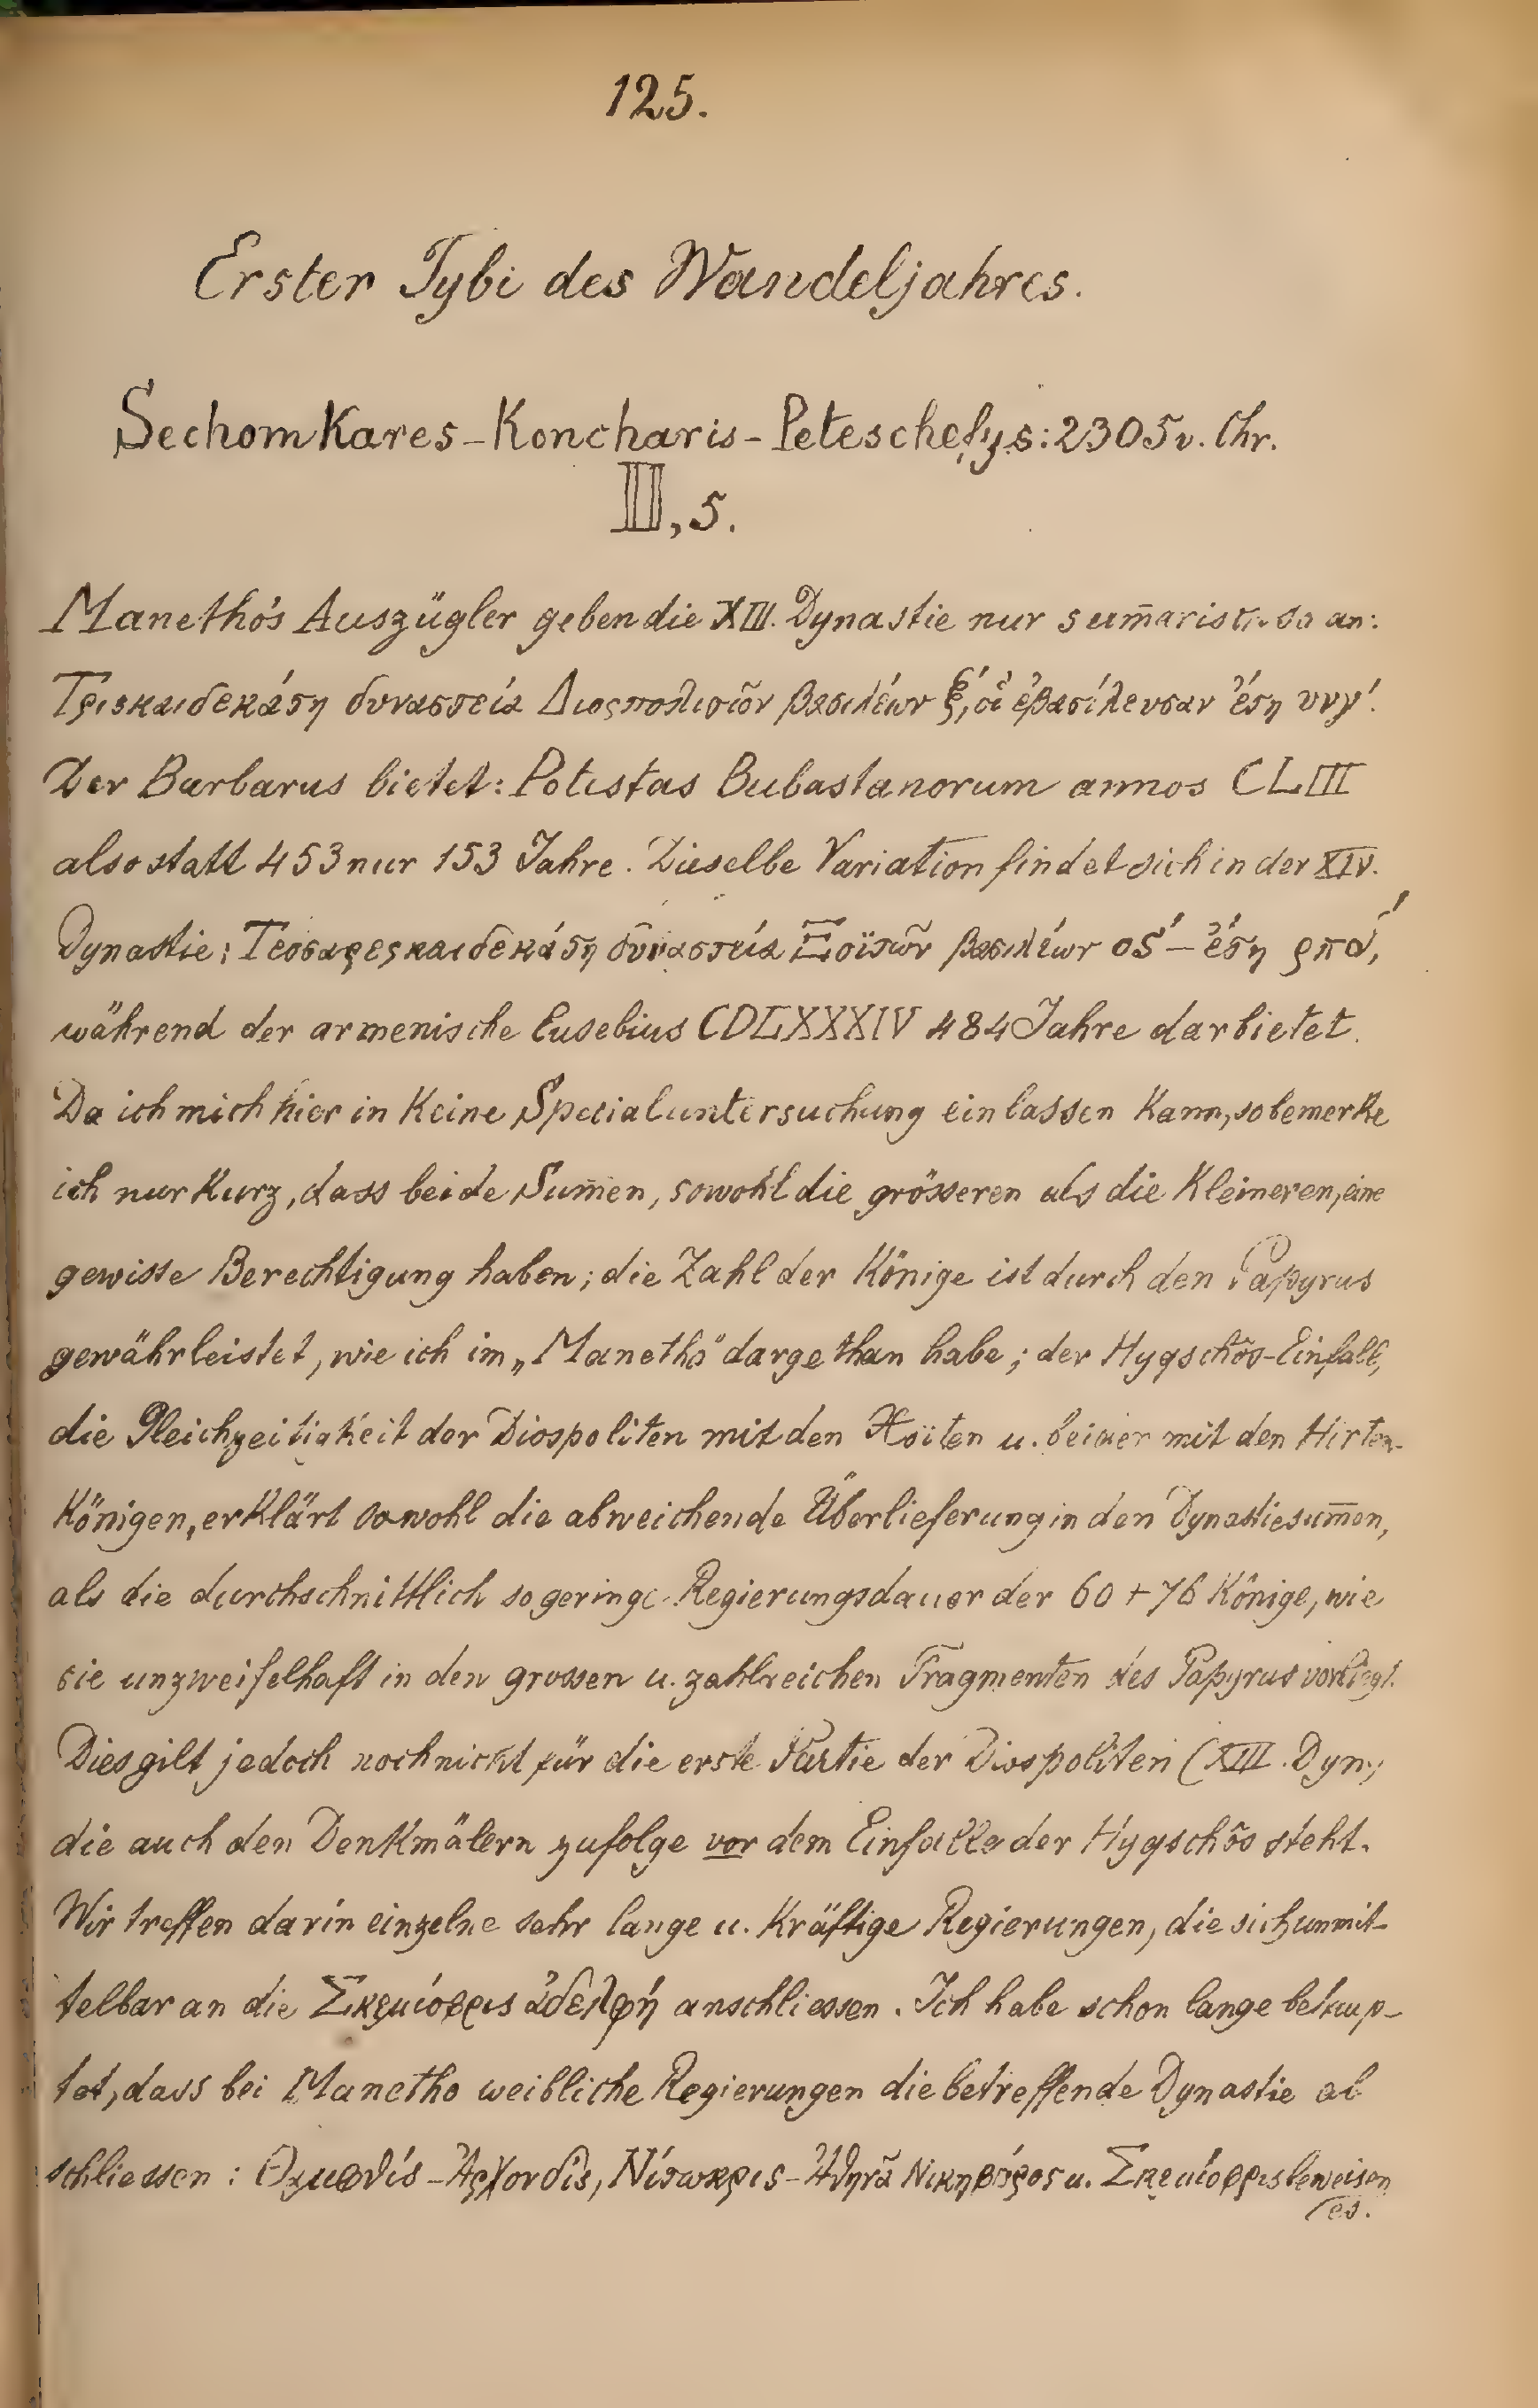 125.
Erster Tybi des Wandeljahres.
Sechomkares-Koncharis-Peteschefys: 2305 v. Chr.
III, 5.
Manetho's Auszügler geben die XIII. Dynastie nur sum̄arisch so an:
Τρισκαιδεκάτη δυναστεία Διοςπολιτῶν βασιλέων ξ́, οἳ ἐβασίλευσαν ἔτη υνγ′.
Der Barbarus bietet: Potestas Bubastanorum annos CLIII
also statt 453 nur 153 Jahre. Dieselbe Variation findet sich in der XIV.
Dynastie: Τεσσαρεςκαιδεκάτη δυναστεία Ξοϊτῶν βασιλέων οϛ′ – ἔτη ρπδ′,
während der armenische Eusebius CDLXXXIV 484 Jahre darbietet.
Da ich mich hier in keine Specialuntersuchung einlassen kann, so bemerke
ich nur kurz, dass beide Sum̄en, sowohl die grösseren als die kleineren, eine
gewisse Berechtigung haben; die Zahl der Könige ist durch den Papyrus
gewährleistet, wie ich im „Manetho" dargethan habe; der Hyqschôs-Einfall,
die Gleichzeitigkeit der Diospoliten mit den Xoïten u. beider mit den Hirten-
Königen, erklärt sowohl die abweichende Überlieferung in den Dynastiesum̄en,
als die durchschnittlich so geringe Regierungsdauer der 60 + 76 Könige, wie
sie unzweifelhaft in den grossen u. zahlreichen Fragmenten des Papyrus vorliegt.
Dies gilt jedoch noch nicht für die erste Partie der Diospoliten (XIII. Dyn.)
die auch den Denkmälern zufolge vor dem Einfalle der Hyqschôs steht.
Wir treffen darin einzelne sehr lange u. kräftige Regierungen, die sich unmit-
telbar an die Σκεμίοφρις ἀδελφή anschliessen. Ich habe schon lange behaup-
tet, dass bei Manetho weibliche Regierungen die betreffende Dynastie ab
schliessen: Νίτωκρις-Ἀθηνᾶ Νικηφόρος u. Σκεμίοφρις beweisen
es.